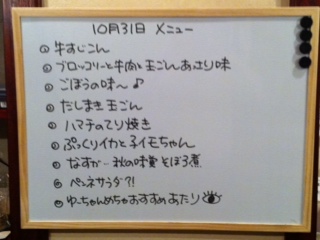 10月31日 メニュー
① 牛すじこん
② ブロッコリーと牛肉と玉ごんあっさり味
③ ごぼうの味〜♪
④ だしまき玉ごん
⑤ ハマチのてり焼き
⑥ ぷっくりイカと子イモちゃん
⑦ なすが‥秋の味覚そぼろ煮
⑧ ペンネサラダ?!
⑨ ゆーちゃんめちゃおすすめあたり